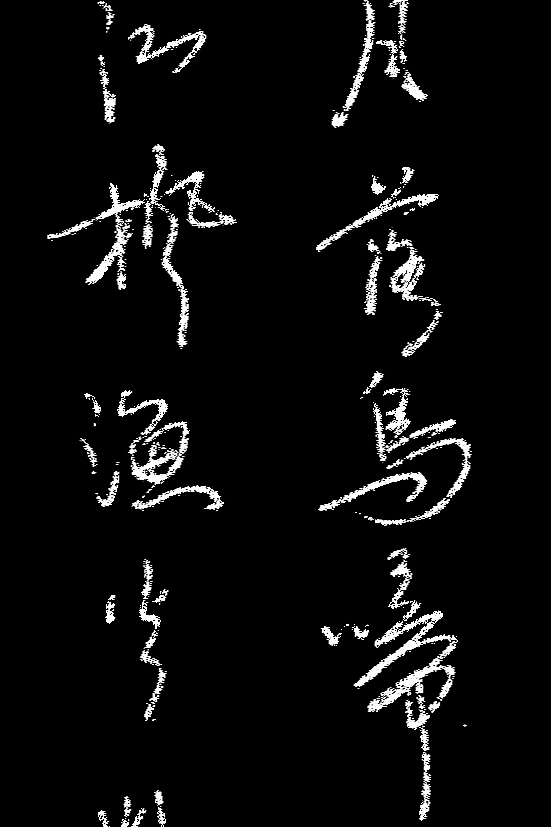 月落烏啼
江楓漁火